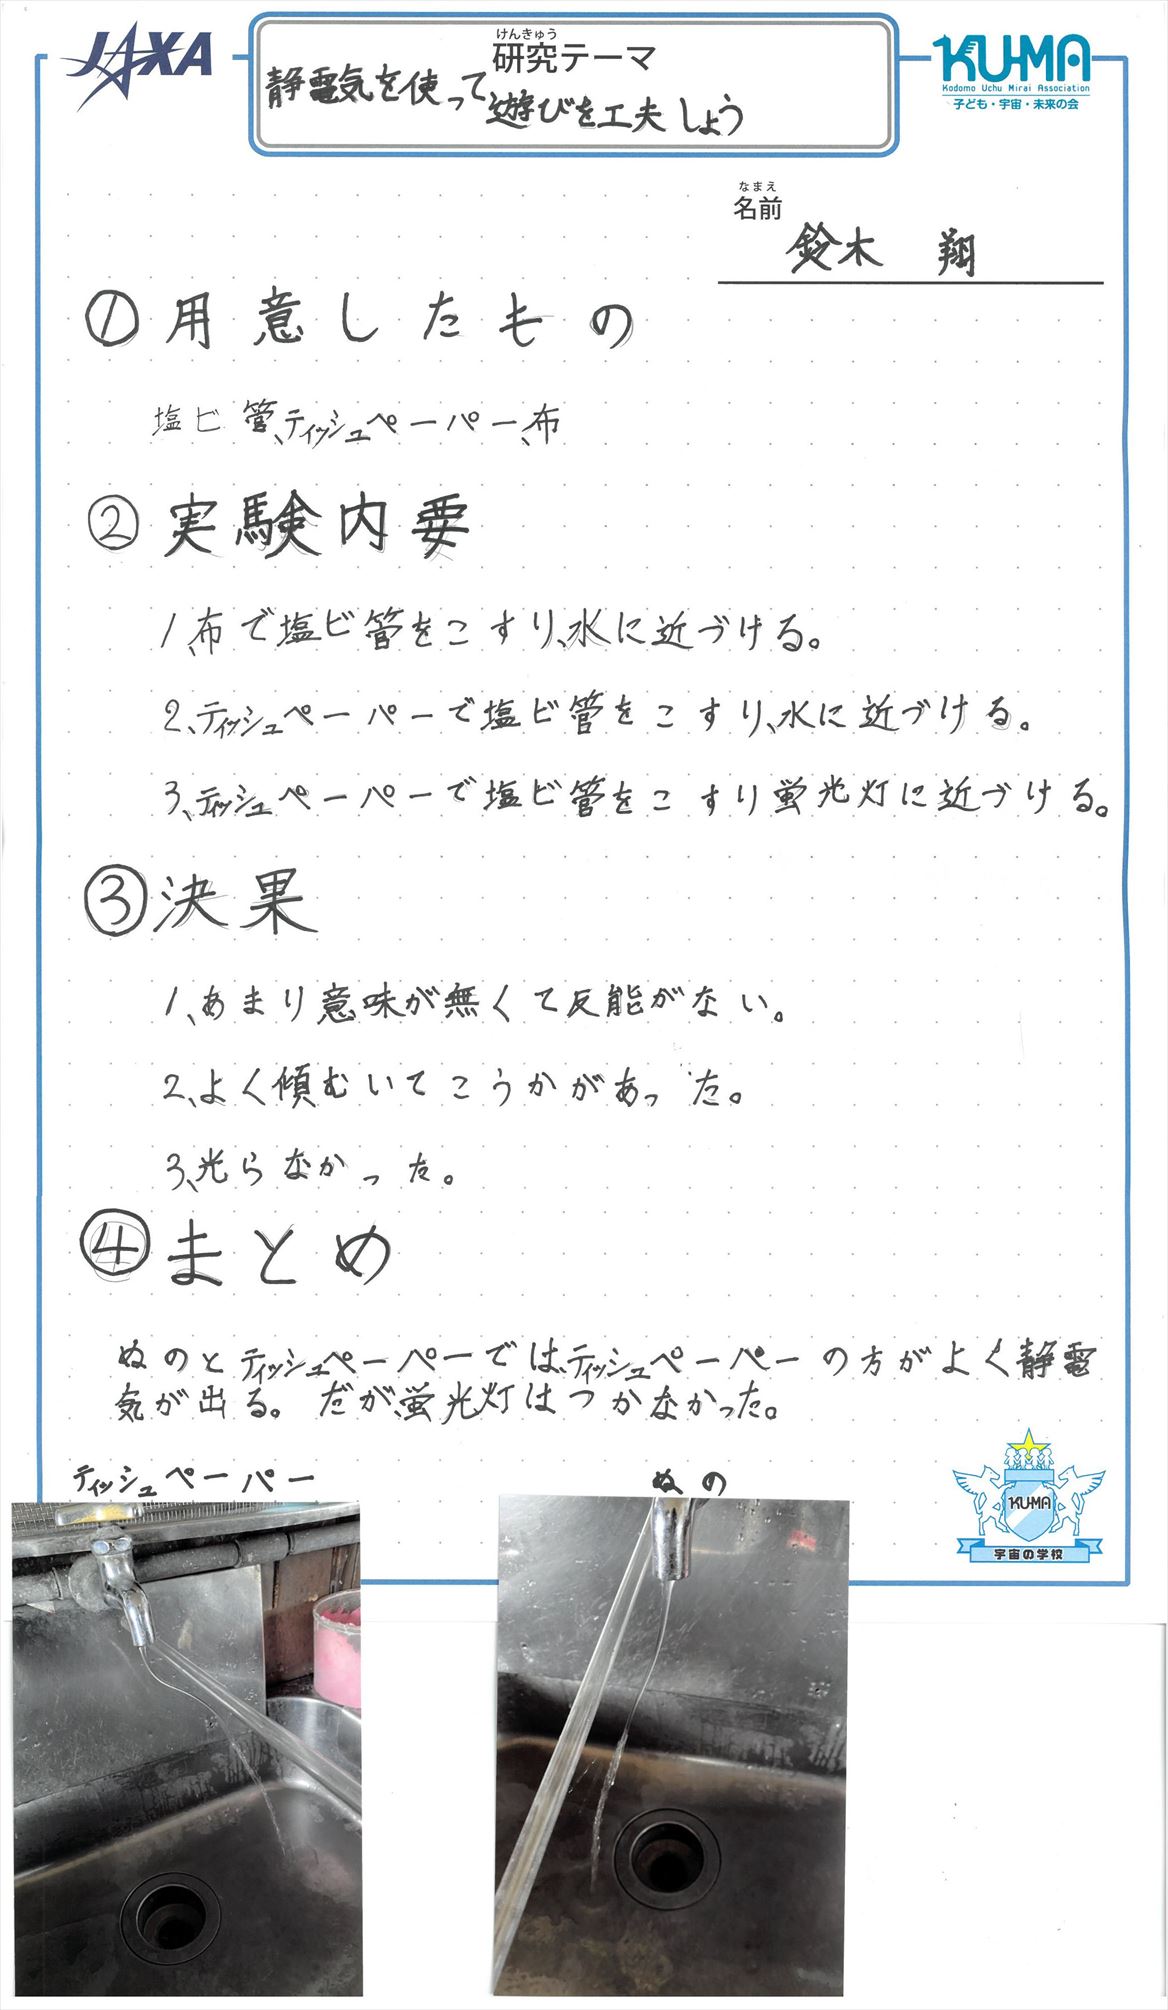 JAXA
けんきゅう
研究テーマ
静電気を使って、遊びを工夫しよう
KU-MA
Kodomo Uchu Mirai Association
子ども・宇宙・未来の会
なまえ
名前
鈴木 翔
① 用意したもの
塩ビ管、ティッシュペーパー、布
② 実験内要
1、布で塩ビ管をこすり、水に近づける。
2、ティッシュペーパーで塩ビ管をこすり、水に近づける。
3、ティッシュペーパーで塩ビ管をこすり蛍光灯に近づける。
③ 決果
1、あまり意味が無くて反能がない。
2、よく傾むいてこうかがあった。
3、光らなかった。
④ まとめ
ぬのとティッシュペーパーでは、ティッシュペーパーの方がよく静電
気が出る。だが、蛍光灯はつかなかった。
ティッシュペーパー
ぬの
KU-MA
宇宙の学校